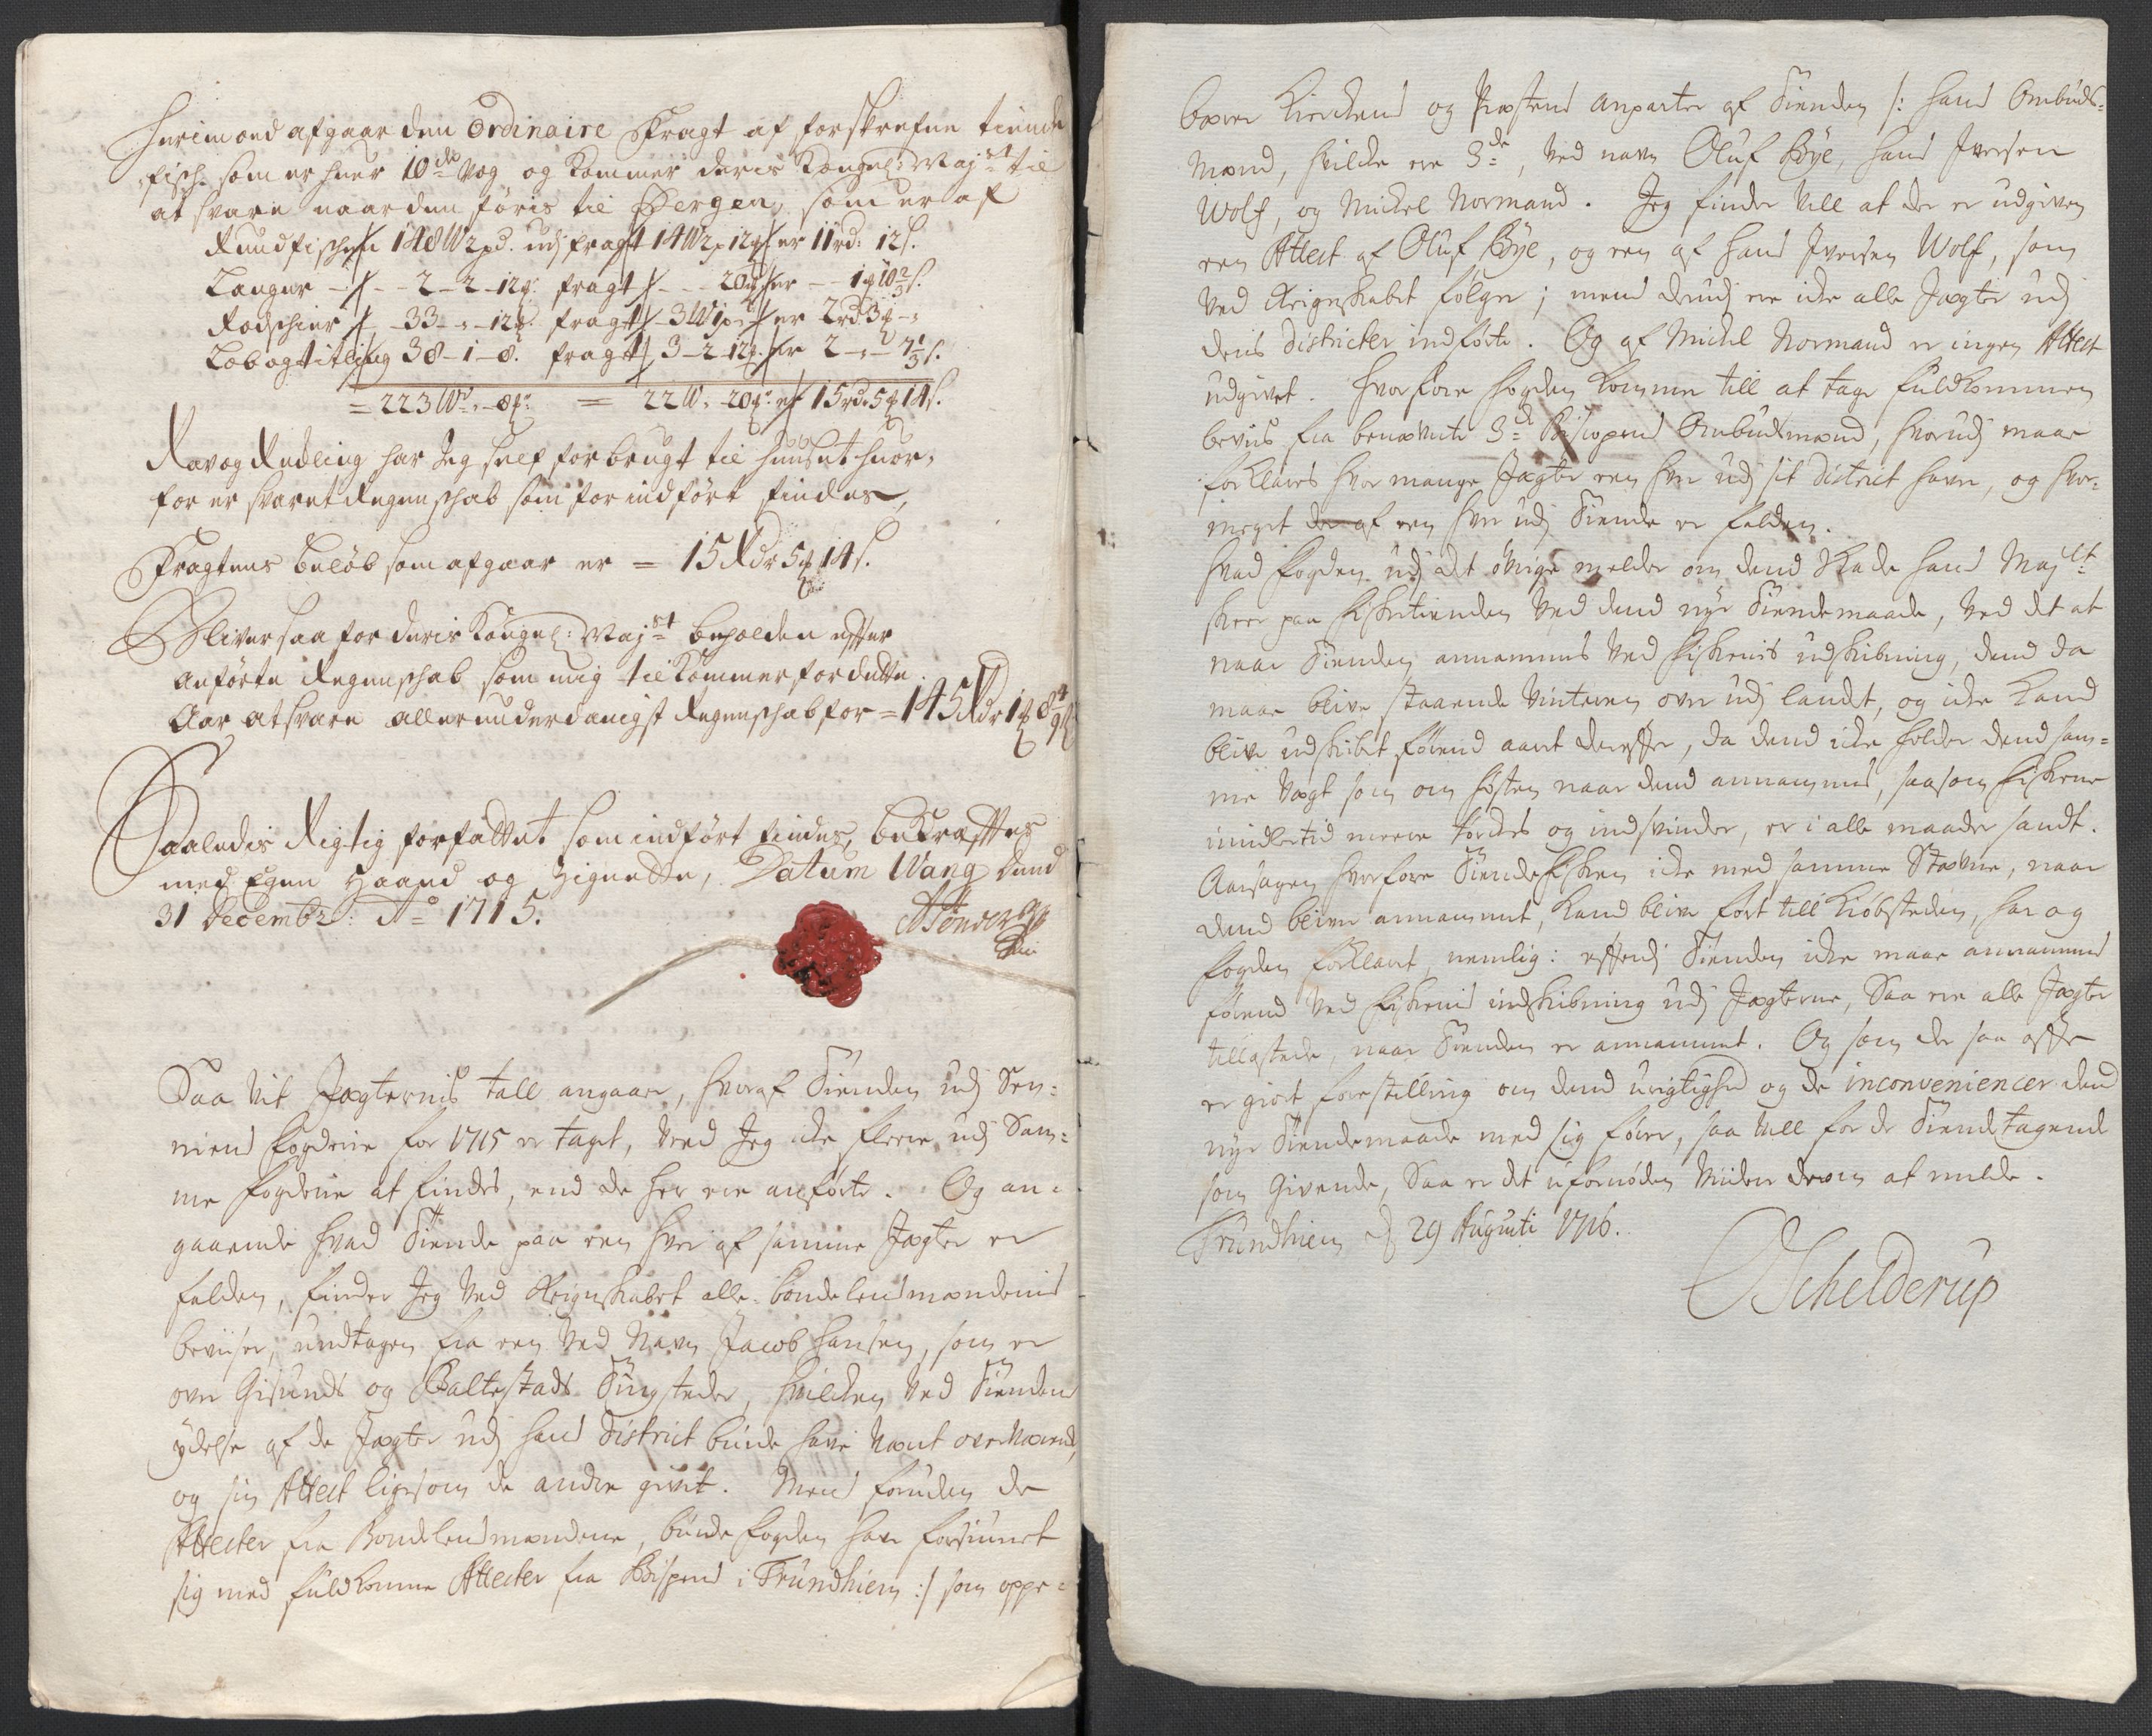 Herimod afgaar den Ordinaire Fragt af forskrefne tiende
fisch som er hver 10de Vog og kommer deris Kongel: Mayst til
at svare naar den föris til Bergen, som er af
Rundfischen 148W 2pd. udj fragt 14W 2p 12# er 11rd: 12s.
Langer - - 2 - 2 - 12# fragt - - 20# er - 1# 10 2/3 s.
Rodschier - 33 - " - 12# fragt - 3W 1p " er 2rd 3# - "
Lob og titling 38 - 1 - 8. fragt 3 - 2 - 12# er 2 - " - 7 1/3 s.
= 223W " - 8# = 22W " 20# er 15rd 5# 14s.
Rav og Redling har Jeg self forbrugt til huuset hvor,
for er svaret Regenschab som for indfört findes,
Fragtens belöb som afgaar er = 15Rdr 5# 14s.
Bliver saa for deris Kongel: Mayst beholden efter
anförte Regenschab som mig tilkommer for dette
Aar at svare allerunderdanigst Regenschab for = 145Rdr 1# 8 4/9 s
Saaledis Rigtig forfattet som indfört findes, bekræfftes
med Egen Haand og Zignette, Datum Wang dend
31 Decembr: Ao 1715.
ATönder
Saa vit Jægternis tall angaaer, hvoraf Tienden udj Sen-
niens fogderie for 1715 er taget, veed Jeg icke fleere udj Sam-
me fogderie at findes, end de her ere anförte. Og an-
gaaende hvad Tiende paa een hver af samme Jægter er
falden, finder Jeg ved Reignskabet alle bondelensmændenis
beviiser, undtagen fra een ved Navn Jacob Hansen, som er
over Gisunds og Baltestads Tingsteder, hvilcken ved Tiendens
ydelse af de Jægter udj hans District burde have været overværende,
og sin Attest ligesom de andre givet. Mens foruden de
Attester fra Bondelensmændene, burde fogden have forsiunet
sig med fuldkomne Attester fra Bispens i Trundhiem :/ som oppe-
bærer Kirckens og Præstens anparter af Tienden /: hans Ombuds-
mænd, hvilcke ere 3de, ved navn Oluf Böye, Hans Iversen
Wolf, og Michel Normand. Jeg finder vell at der er udgiven
een Attest af Oluf Böye, og een af Hans Iversen Wolf, som
ved Reigenskabet fölger; mens derudj ere icke alle Jægter udj
deris Districter indförte. Og af Michel Normand er ingen Attest
udgivet. Hvorfore fogden kommer till at tage fuldkommen
beviis fra benævnte 3de Biskopens Ombudsmænd, hvorudj maae
forklares hvor mange Jægter een hver udj sit District haver, og hvor-
meget der af een hver udj Tiende er falden.
Hvad fogden udj det övrige melder om dend Skade hans Mayst
skeer paa fisketienden ved dend nye Tiendemaade, ved det at
naar Tienden annammes ved fiskenis udskibning, dend da
maae blive staaende vinteren over udj landet, og icke kand
blive udskibet förend aaret derefter, da dend icke holder dend sam-
me vægt som om hösten naar dend annammes, saasom fiskene
imidlertid meere tördes og indsvinder, er i alle maader sandt.
Aarsagen hvorfore Tiendefisken icke med samme Stævne, naar
dend bliver annammet, kand blive fört till kiöbsteden, har og
fogden forklaret, nemlig: efterdj Tienden icke maae annammes
förend ved fiskenis indskibning udj Jægterne, Saa ere alle Jægter
tillastede, naar Tienden er annammet. Og som der saa offte
er giort forestilling om dend urigtighed og de inconveniencer dend
nye Tiendemaade med sig förer, saa vell for de Tiendetagende
som Givende, Saa er det ufornöden viidere derom at melde.
Trundhiem d 29 Augusti 1716.
Schelderup